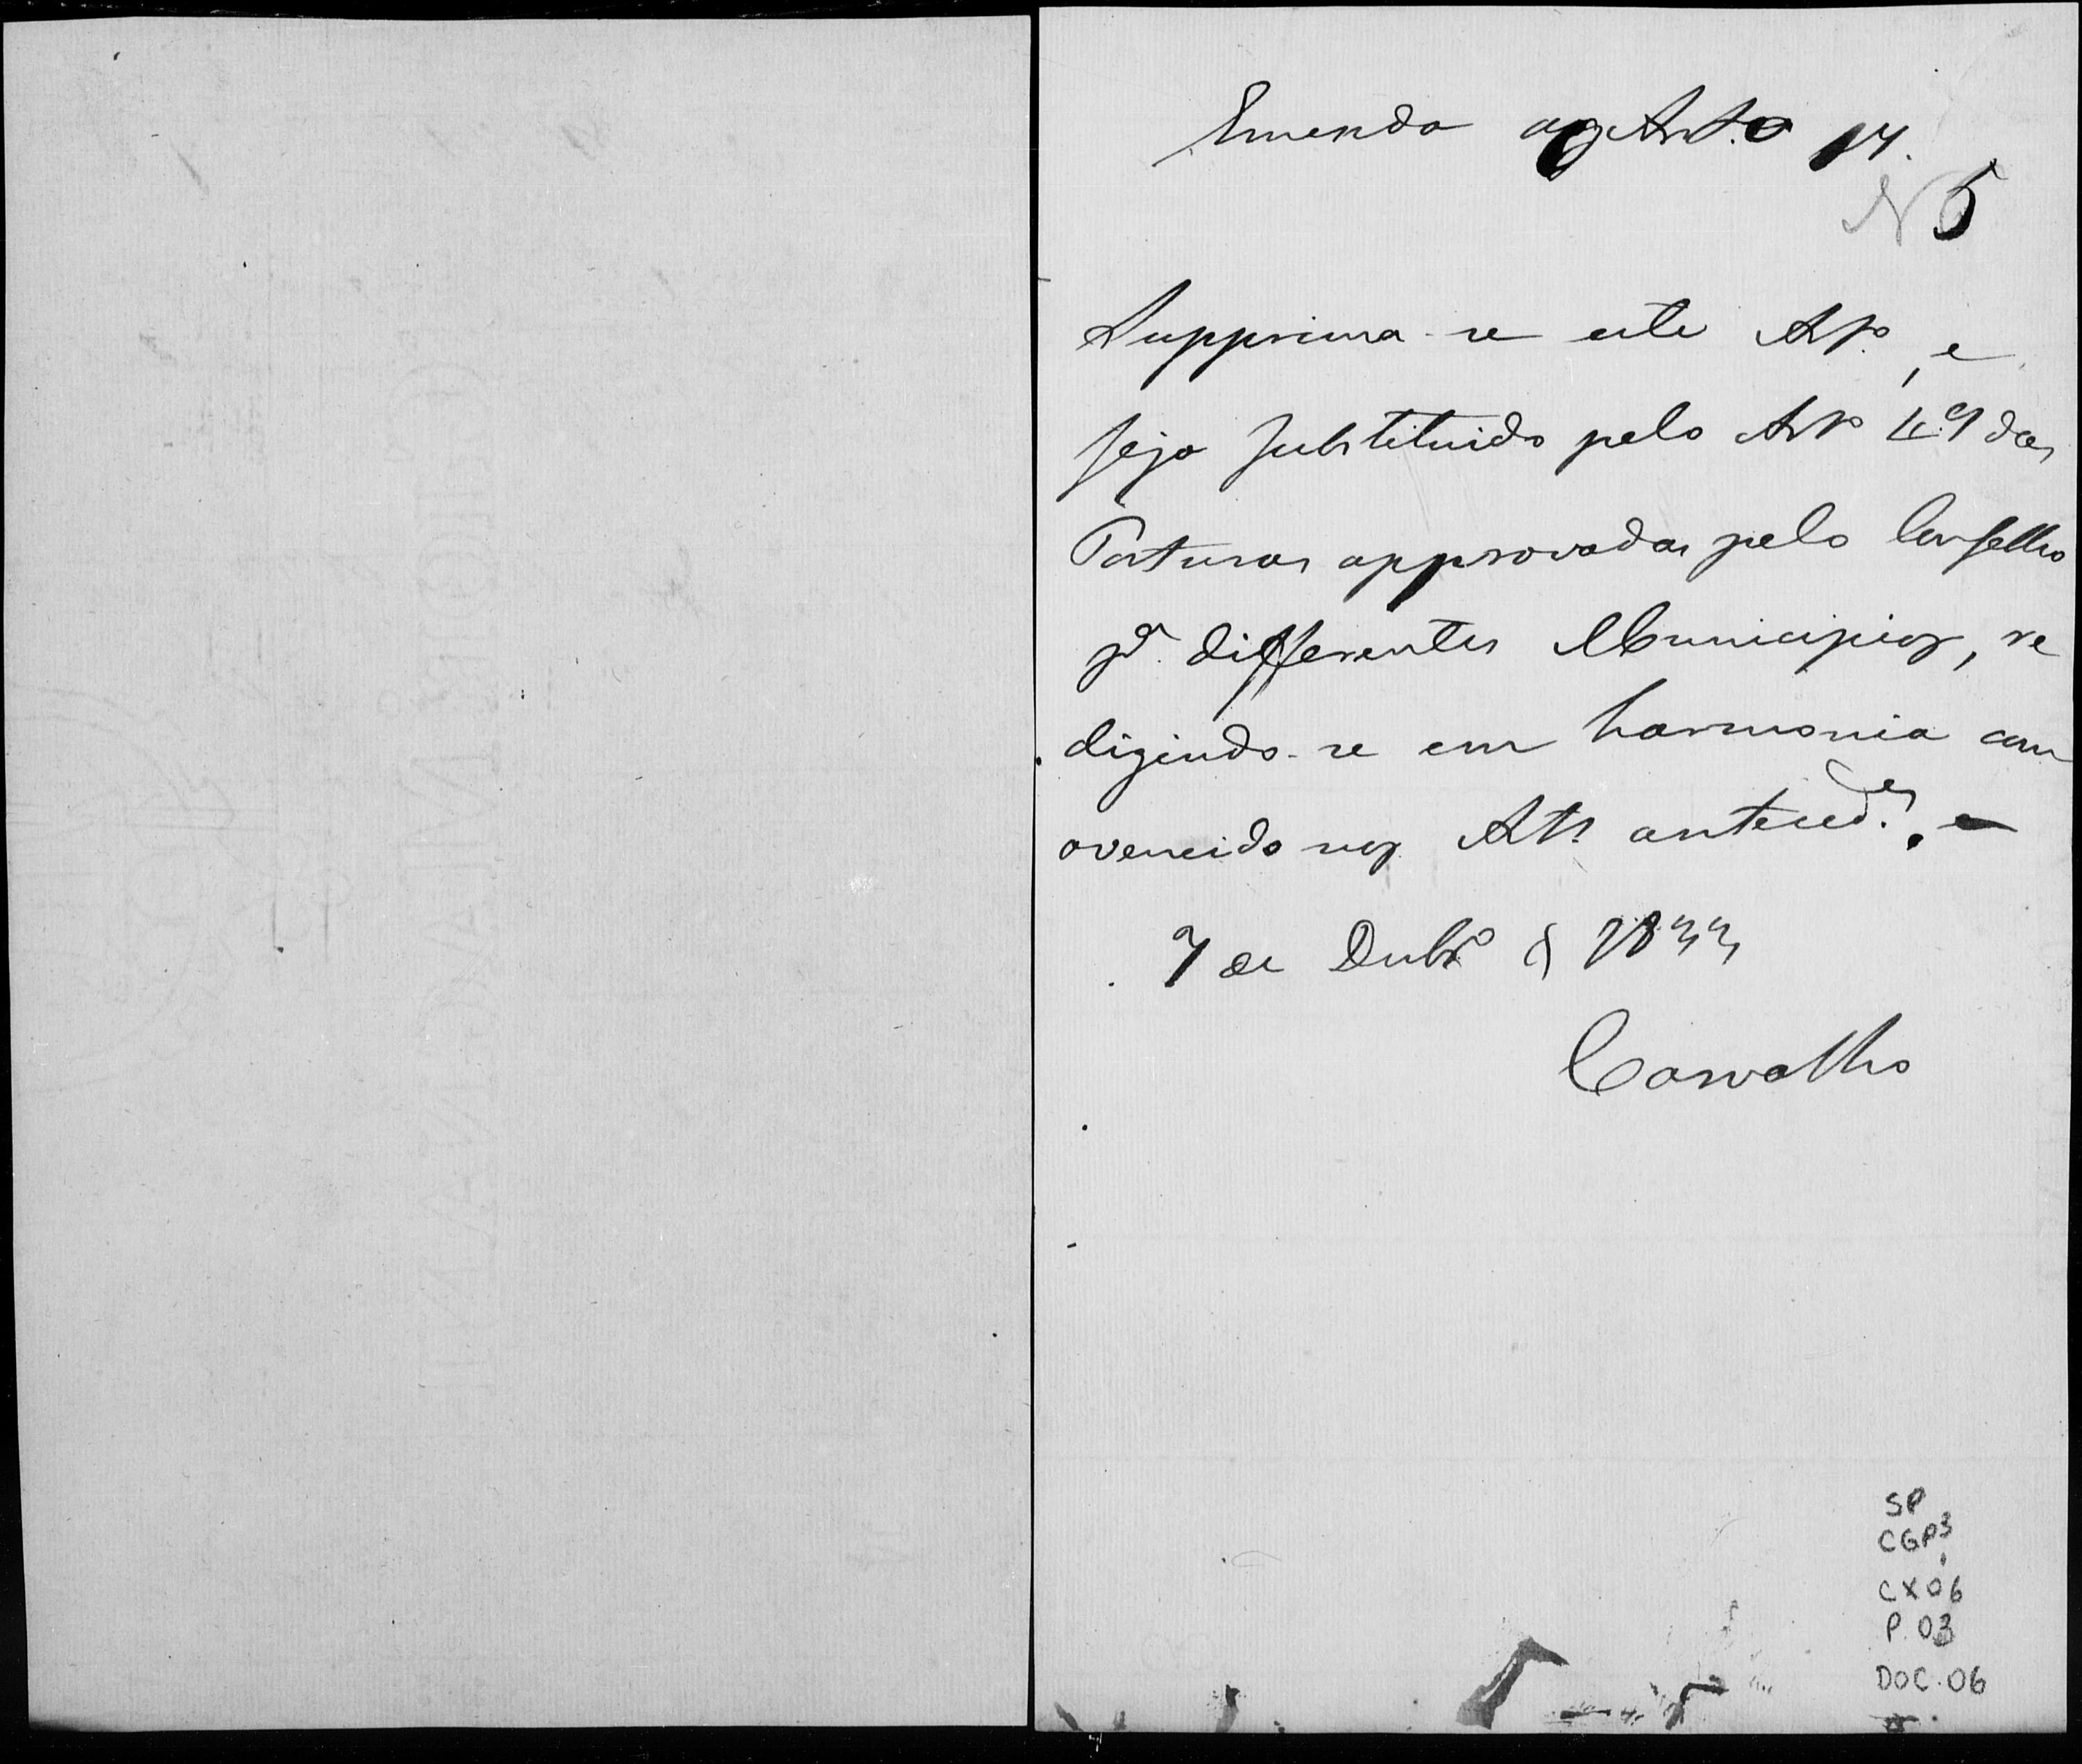 Emenda ao Art.o 14.
N 5
Supprima-se este Arto, e
seja substituido pelo Arto 4º das
Posturas approvadas pelo Conselho
pa. differentes Municipios, re
digindo-se em harmonia com
ovencido nos Arts. anteced.es
7 de Dezbro de 1833
Carvalho
SP
CGP3
CX06
P.03
DOC.06